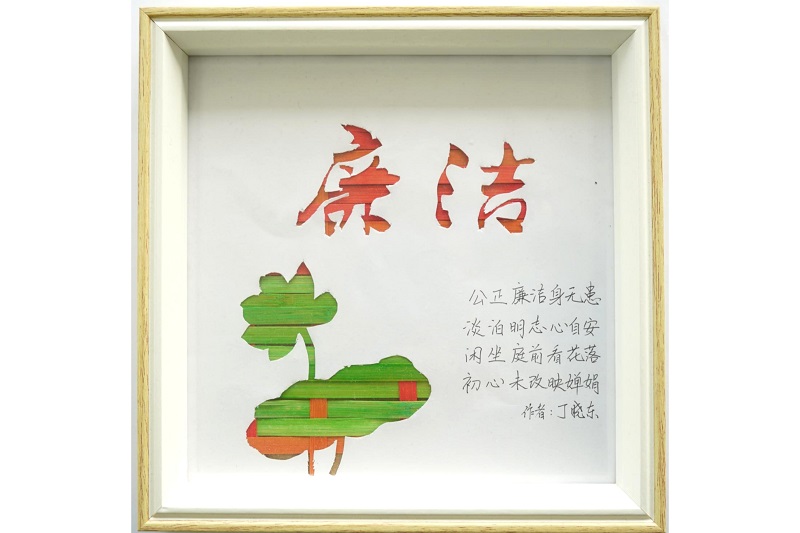 廉洁
公正廉洁身无患
淡泊明志心自安
闲坐庭前看花落
初心未改映婵娟
作者:丁晓东